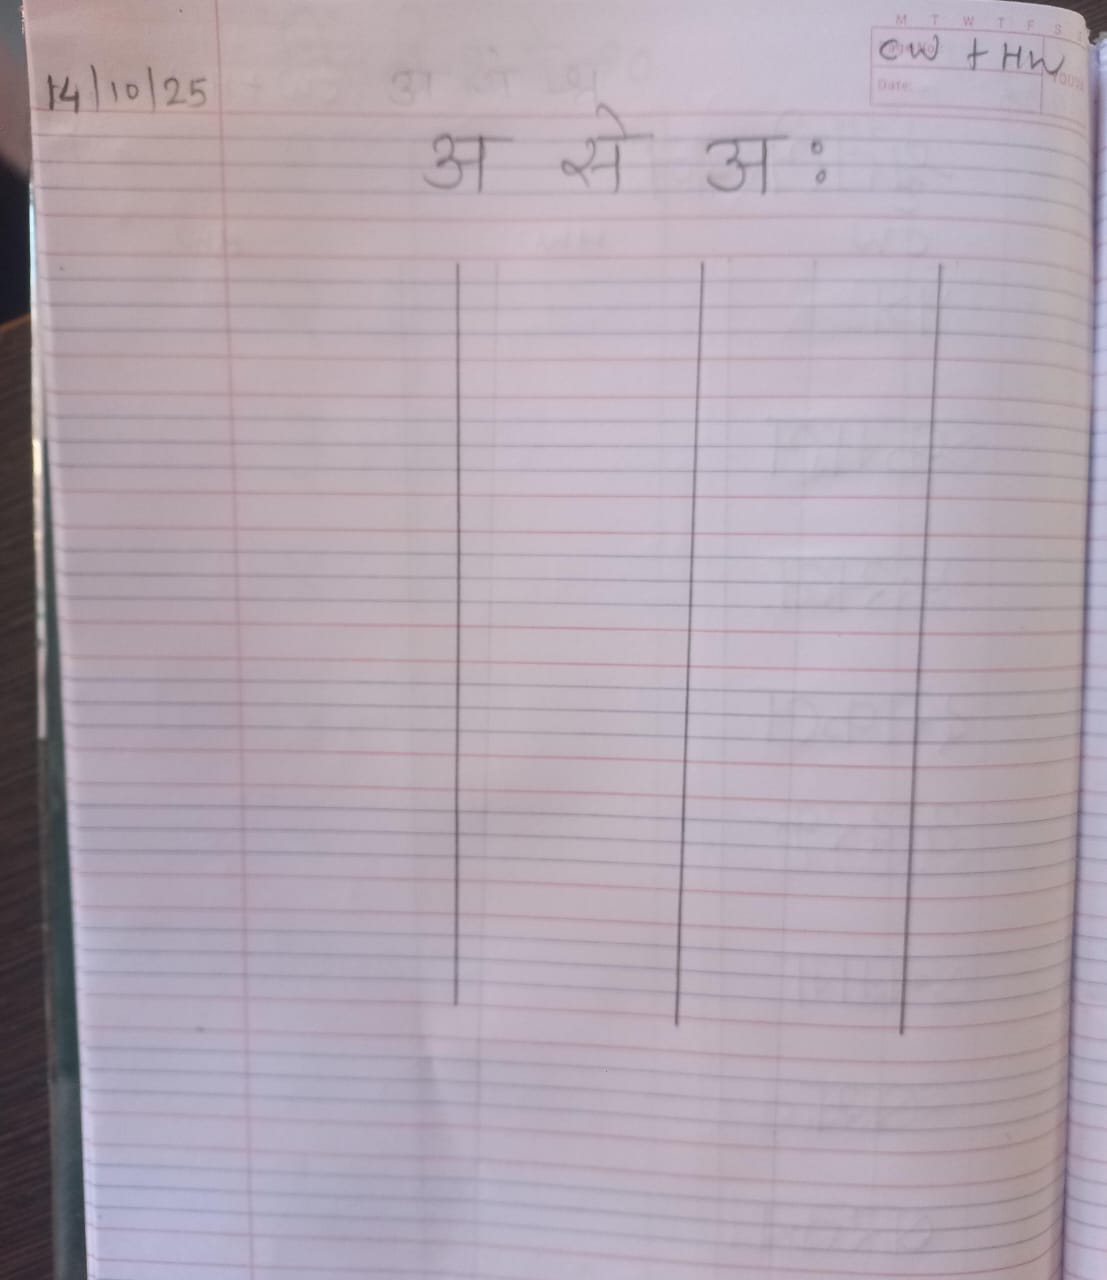 M T W T F S
CW + HW
Date:
14/10/25
अ से अः